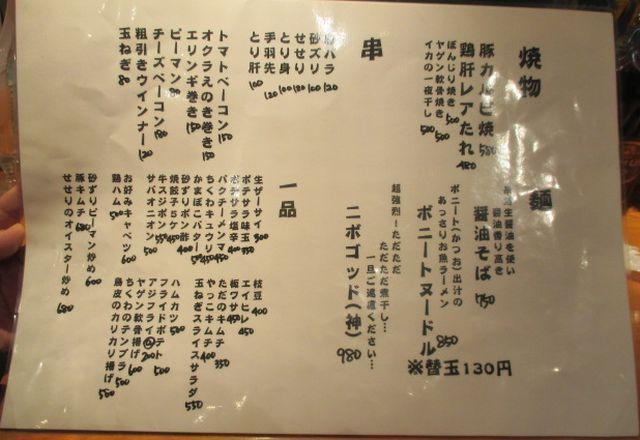 焼物
豚カルビ焼 580
鶏肝レアたれ 480
ぼんじり焼き 500
ヤゲン軟骨焼き 500
イカの一夜干し 500
串
豚バラ 120
砂ズリ 100
せせり 120
とり身 100
手羽先 120
とり肝 100
トマトベーコン 150
オクラえのき巻き 150
エリンギ巻き 150
ピーマン 80
チーズベーコン 180
粗引きウインナー 120
玉ねぎ 80
麺
生醤油を使い
醤油香り高き
醤油そば 750
ボニート(かつお)出汁の
あっさりお魚ラーメン
ボニートヌードル 850
超強烈!ただただ
ただただ煮干し…
一旦ご遠慮ください…
ニボゴッド(神) 980
※替玉130円
一品
生ザーサイ 300
ポテサラ味玉 350
ポテサラ塩辛 400
パクチーメンマ
ちくわキュウリ
かまぼこバター
砂ずりポン酢 400
焼餃子5ケ
牛スジポン 550
サバオニオン 500
お好みキャベツ 600
鶏ハム 500
砂ずりピーマン炒め 600
豚キムチ 680
せせりのオイスター炒め 680
枝豆 400
エイヒレ 450
板ワサ 450
ただのキムチ 350
やっこキムチ 400
玉ねぎスライスサラダ 550
ハムカツ 500
フライドポテト 500
アジフライ 200
ヤゲン軟骨揚げ 600
ちくわのテンプラ 500
鳥皮のカリカリ揚げ 580